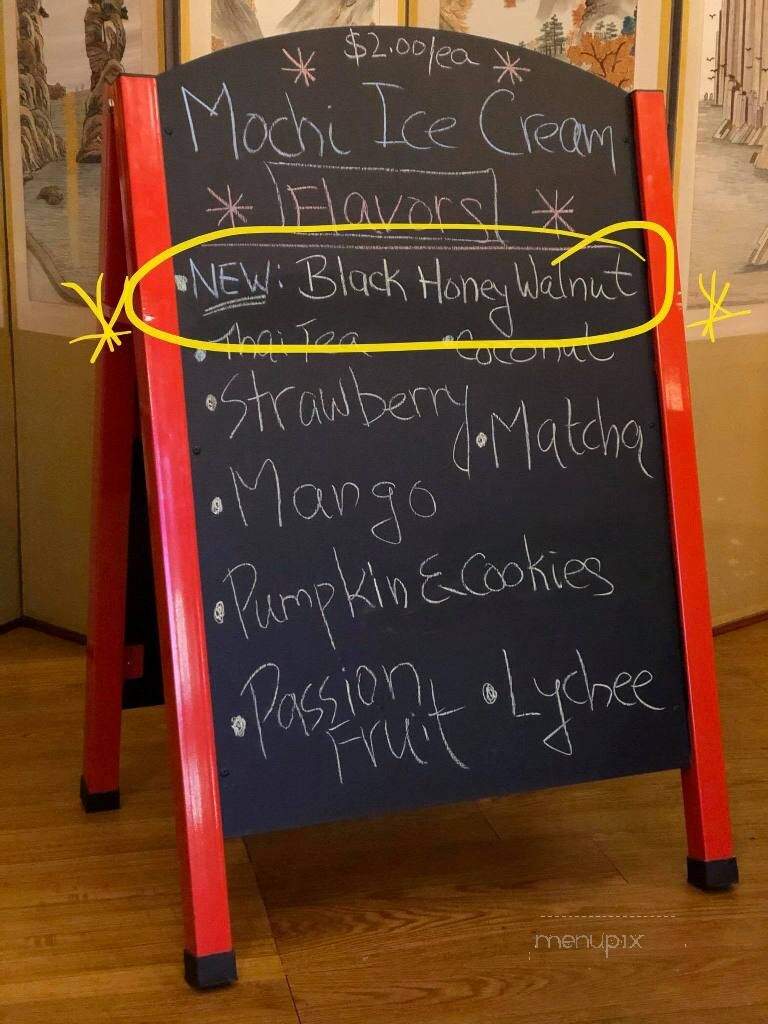 $2.00/ea
Mochi Ice Cream
Flavors
NEW: Black Honey Walnut
Thai Tea
Coconut
Strawberry
Matcha
Mango
Pumpkin & Cookies
Passion
Fruit
Lychee
menupix